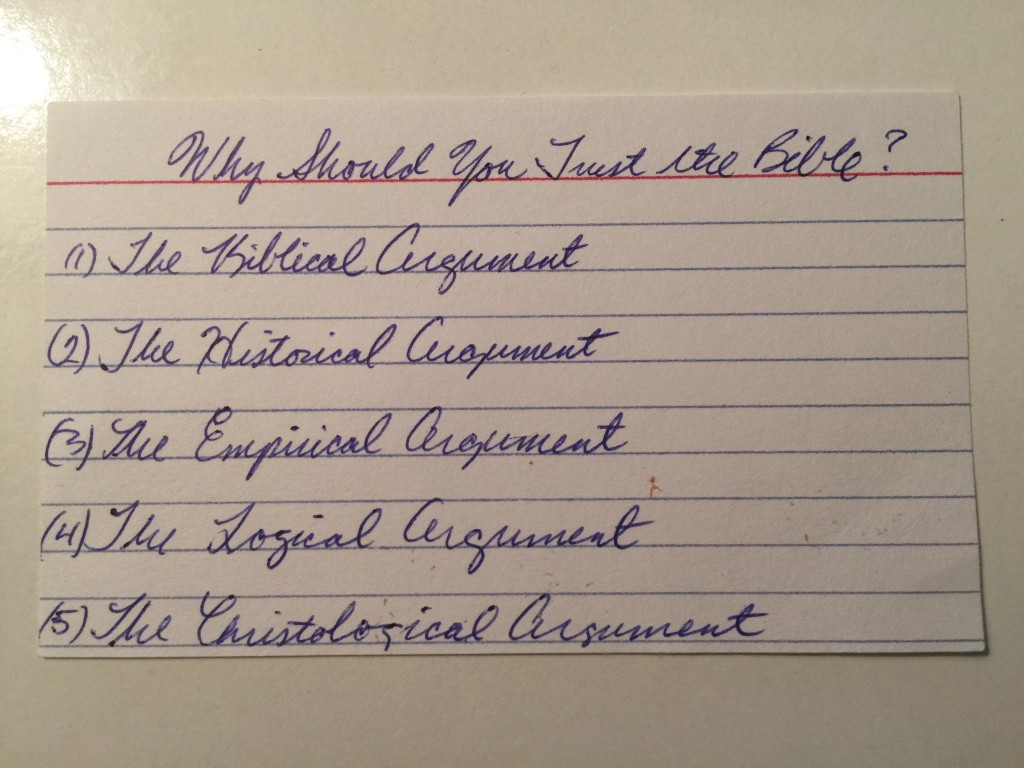 Why Should You Trust the Bible?
(1) The Biblical Argument
(2) The Historical Argument
(3) The Empirical Argument
(4) The Logical Argument
(5) The Christological Argument